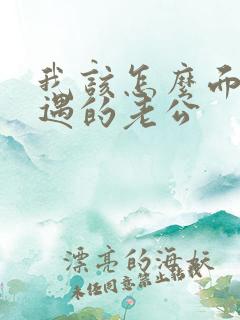 我该怎麽而
遇的老公
漂亮的海妖
未经同意禁止转载